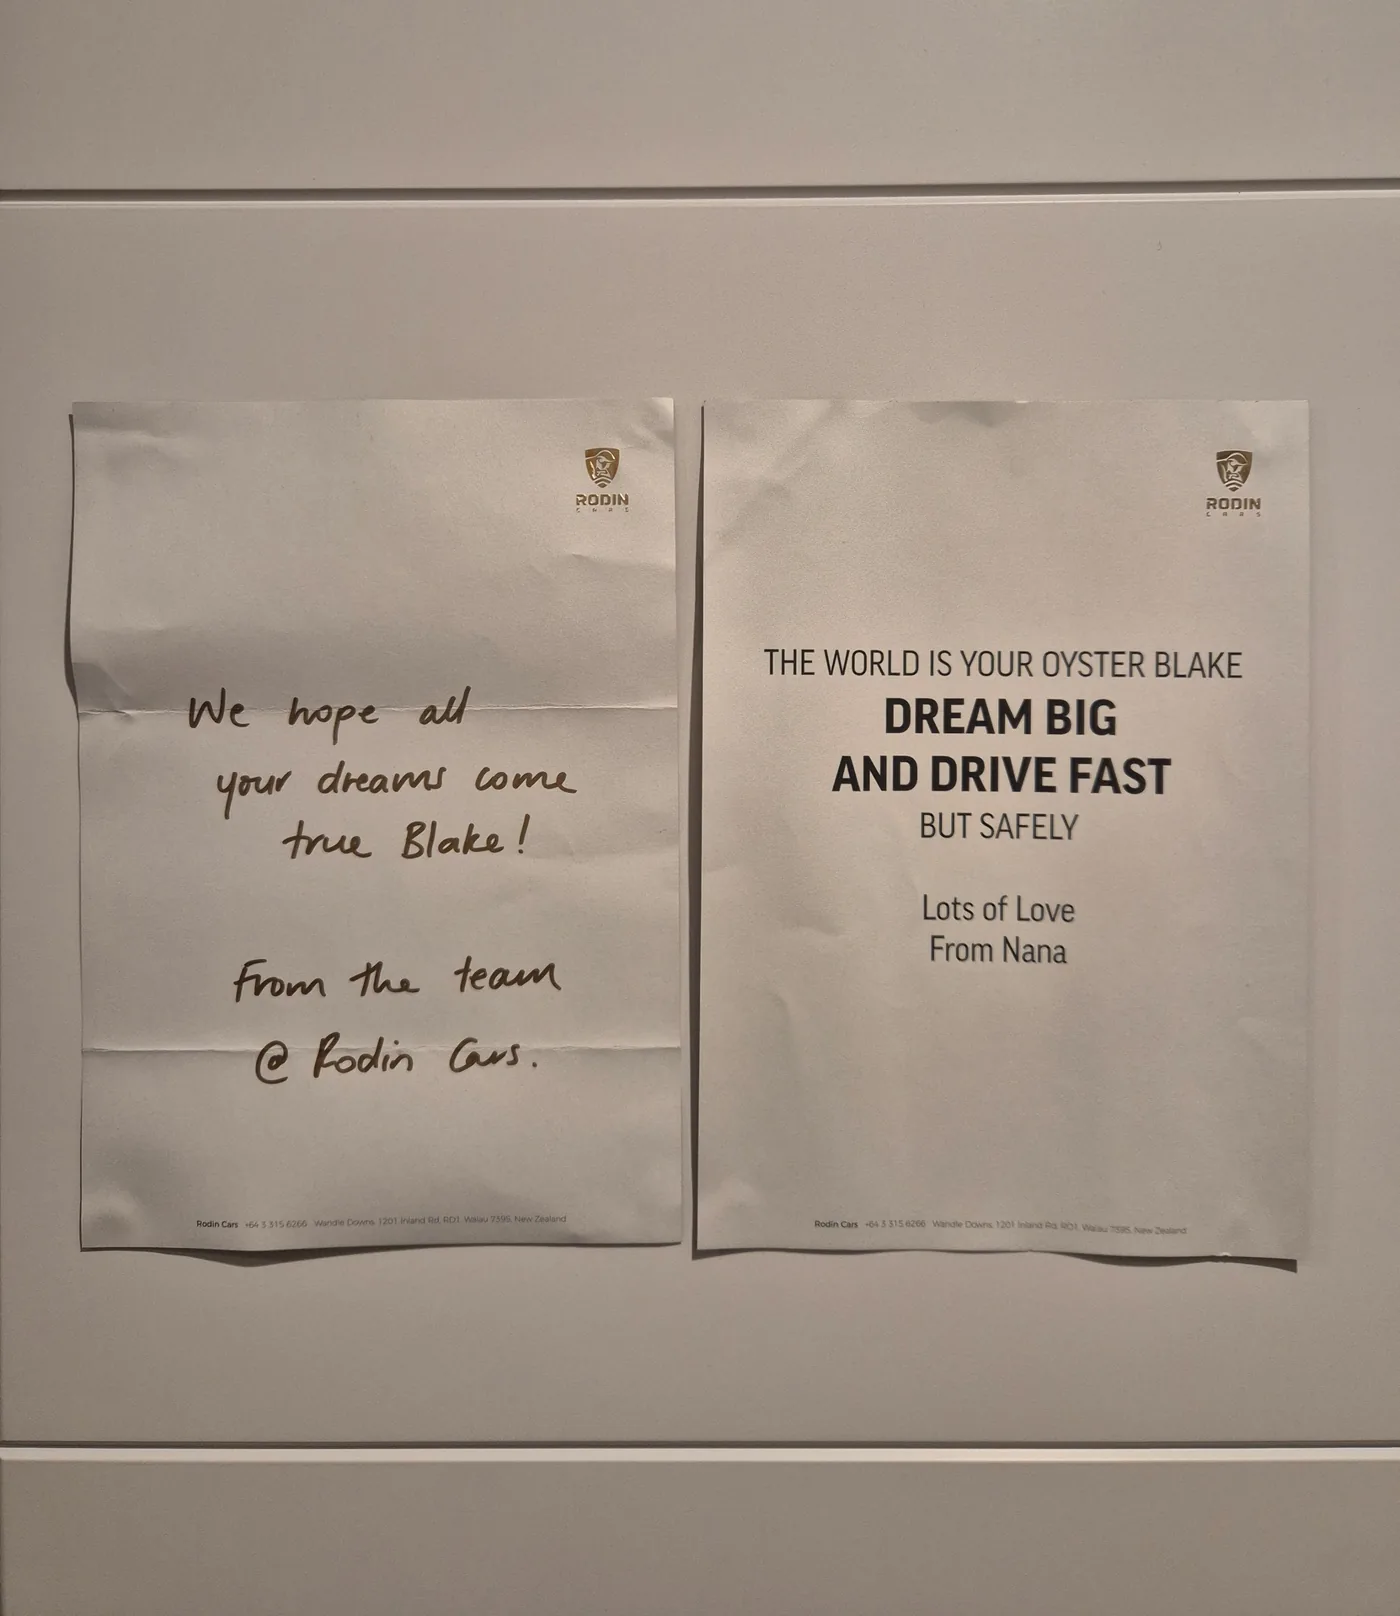 RODIN
CARS
We hope all
your dreams come
true Blake!
From the team
@ Rodin Cars.
Rodin Cars +64 3 315 6266 Wandle Downs, 1201 Inland Rd, RD1, Waiau 7395, New Zealand
RODIN
CARS
THE WORLD IS YOUR OYSTER BLAKE
DREAM BIG
AND DRIVE FAST
BUT SAFELY
Lots of Love
From Nana
Rodin Cars +64 3 315 6266 Wandle Downs, 1201 Inland Rd, RD1, Waiau 7395, New Zealand